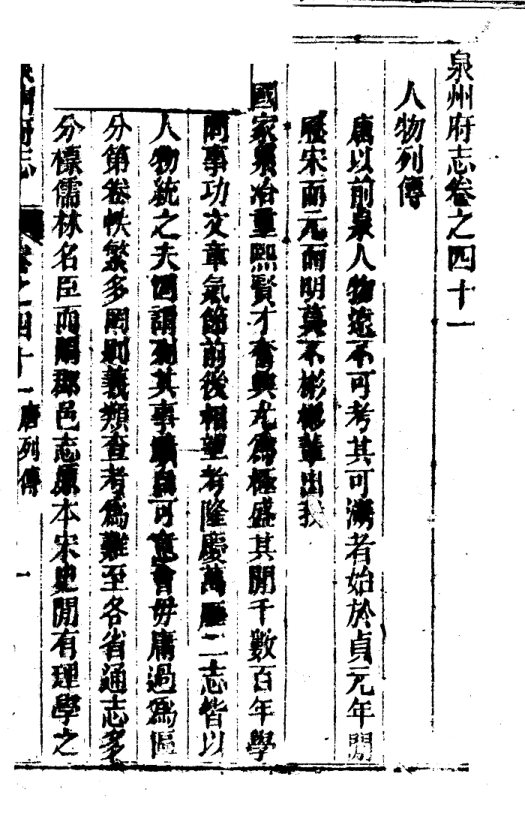 泉州府志卷之四十一
人物列傳
唐以前泉人物遠不可考其可溯者始於貞元年間
歷宋而元而明莫不彬彬輩出我
國家累洽重熙賢才奮興尤為極盛其間千數百年學
問事功文章氣節前後相望考隆慶萬曆二志皆以
人物統之夫固謂列其事蹟自可意會毋庸過為區
分第卷帙繁多門別義類查考為難至各省通志多
分標儒林名臣而關郡邑志原本宋史間有理學之
泉州府志
卷之四十一 唐列傳
一